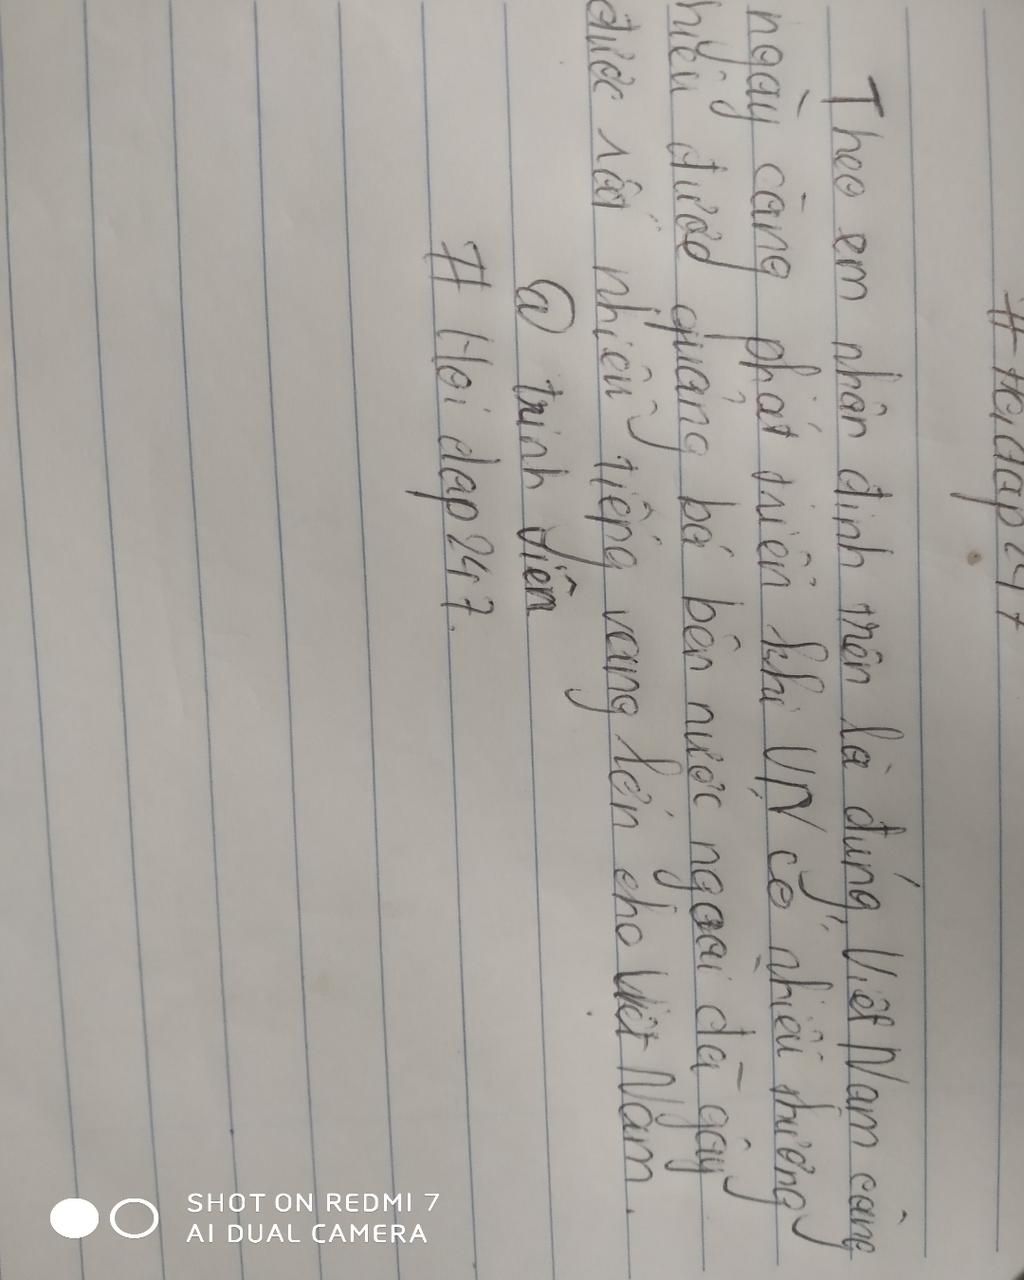 # Hoidap247
Theo em nhân định trên là đúng, Việt Nam càng
ngày càng phát triển khi VN có nhiều thương
hiệu được quảng bá bên nước ngoài đã gây
được rất nhiều tiếng vang lớn cho Việt Nam.
@ trinh viêm
# Hoi dap 247.
SHOT ON REDMI 7
AI DUAL CAMERA